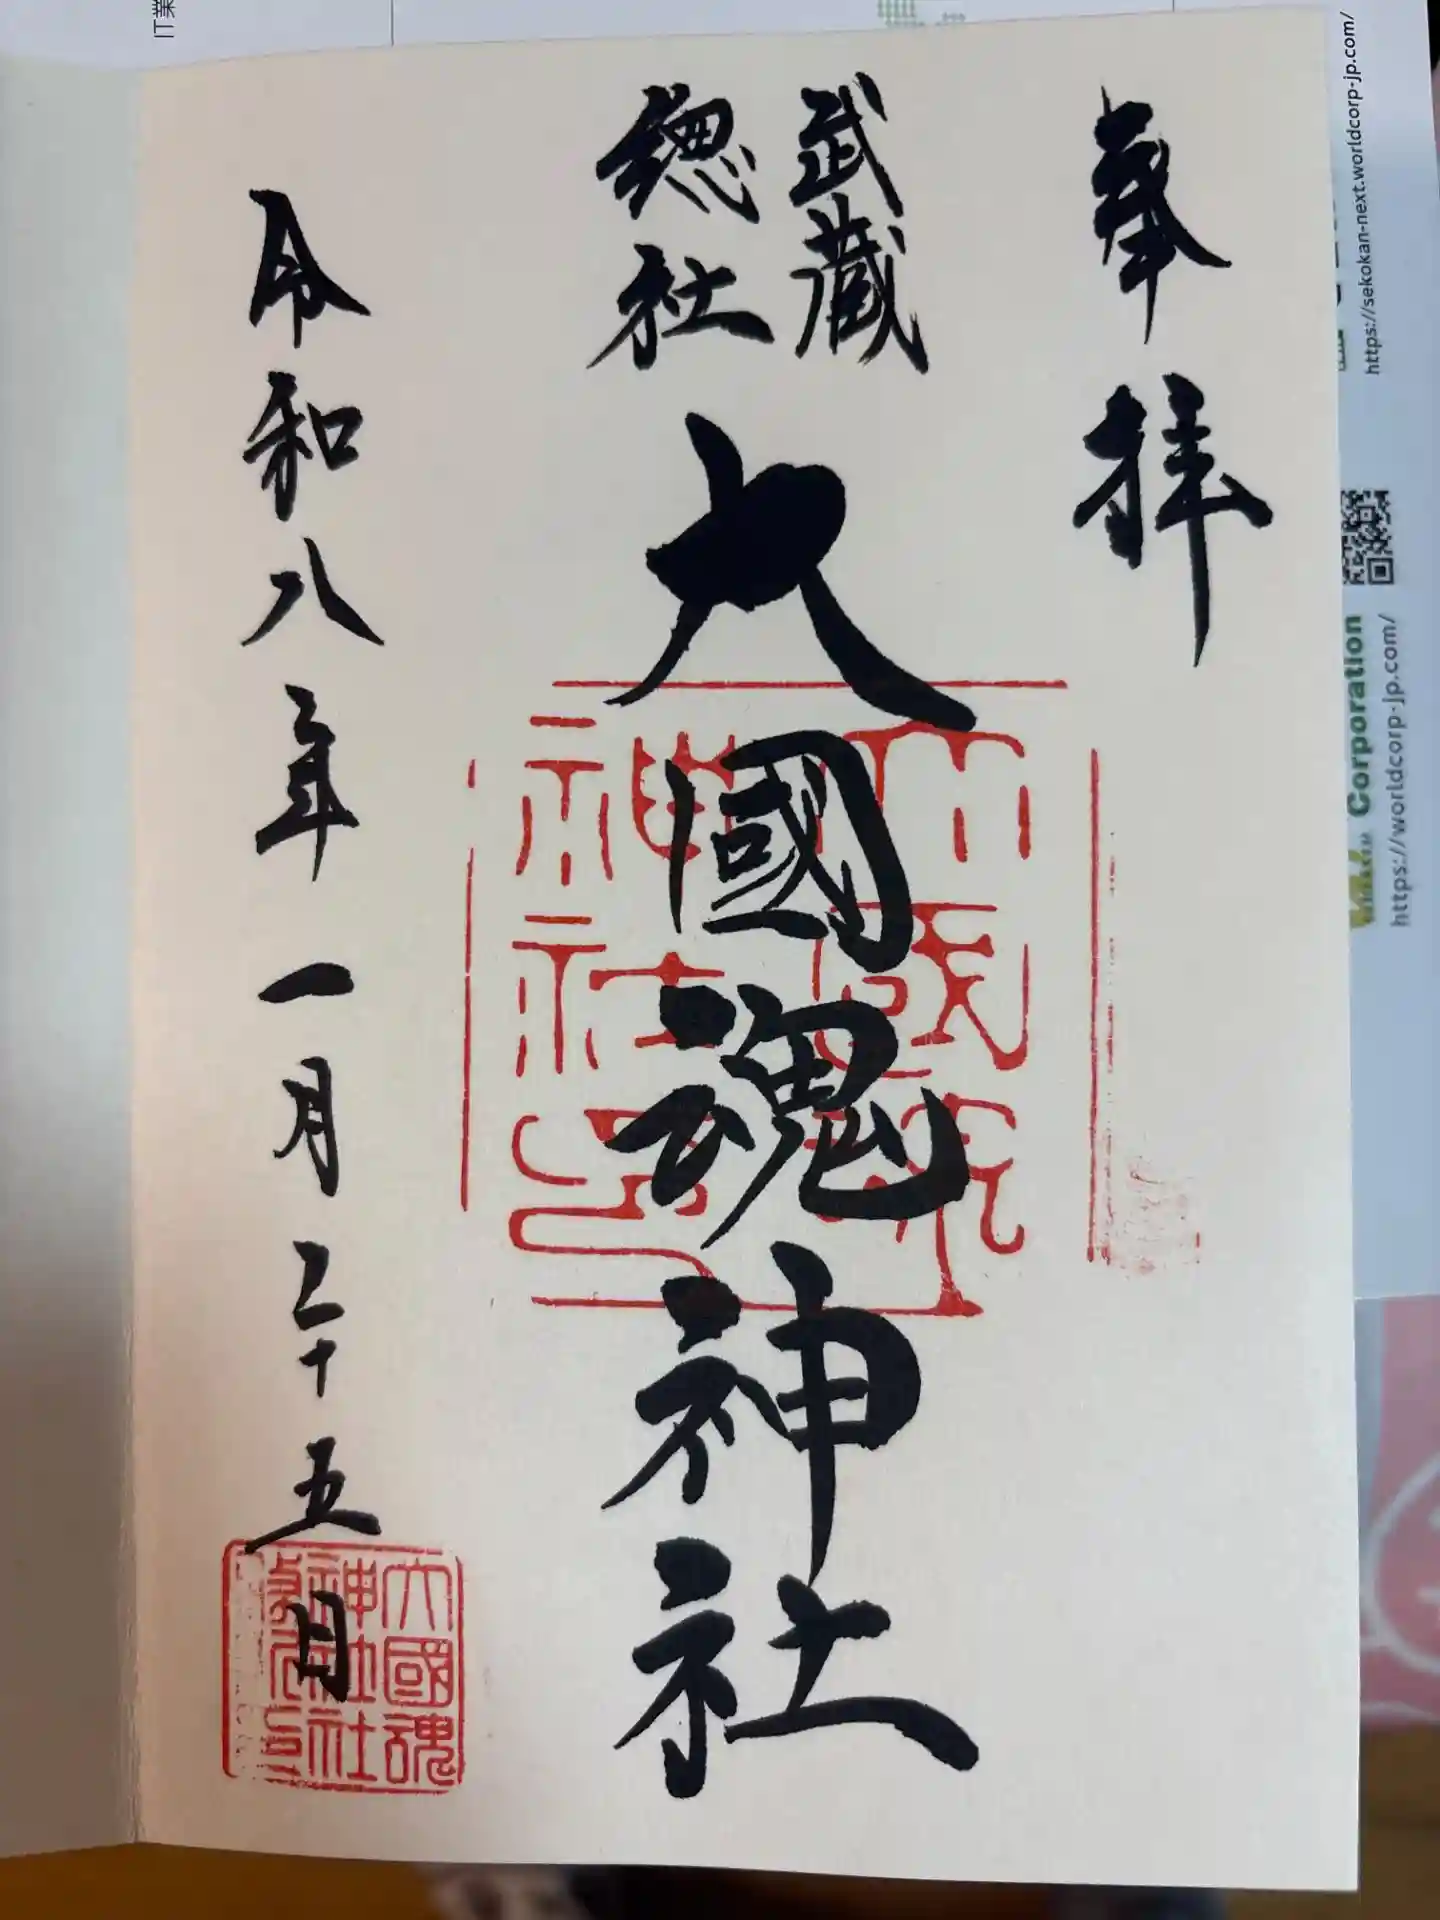 奉拝
武蔵
總社
大國魂神社
令和八年一月二十五日
大國魂
神社
https://sekokan-next.worldcorp-jp.com/
Corporation
https://worldcorp-jp.com/
IT業